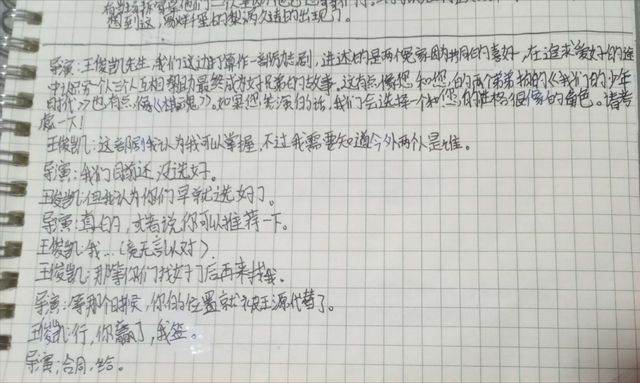 想到这，离奇
出现了。
导演：王俊凯先生，我们这边打算作一部网剧，讲述的是两个冤家因为共同的喜好，在追求爱好的途
中认识另一个人，三人互相帮助最终成为好兄弟的故事。这有点像您和您的两个弟弟拍的《我们的少年
时代》也有点像《棋魂》。如果您出演的话，我们会选择一个和您的性格很像的角色。请考
虑一下！
王俊凯：这部剧我认为我可以掌握，不过我需要知道今外两个人是谁。
导演：我们目前还没选好。
王俊凯：但我认为你们早就选好了。
导演：真的，或者说你可以推荐一下。
王俊凯：我…（竟无言以对）
王俊凯：那等你们找好了后再来找我。
导演：等那个时候，你的位置就被王源代替了。
王俊凯：行，你赢了，我签。
导演：合同，给。